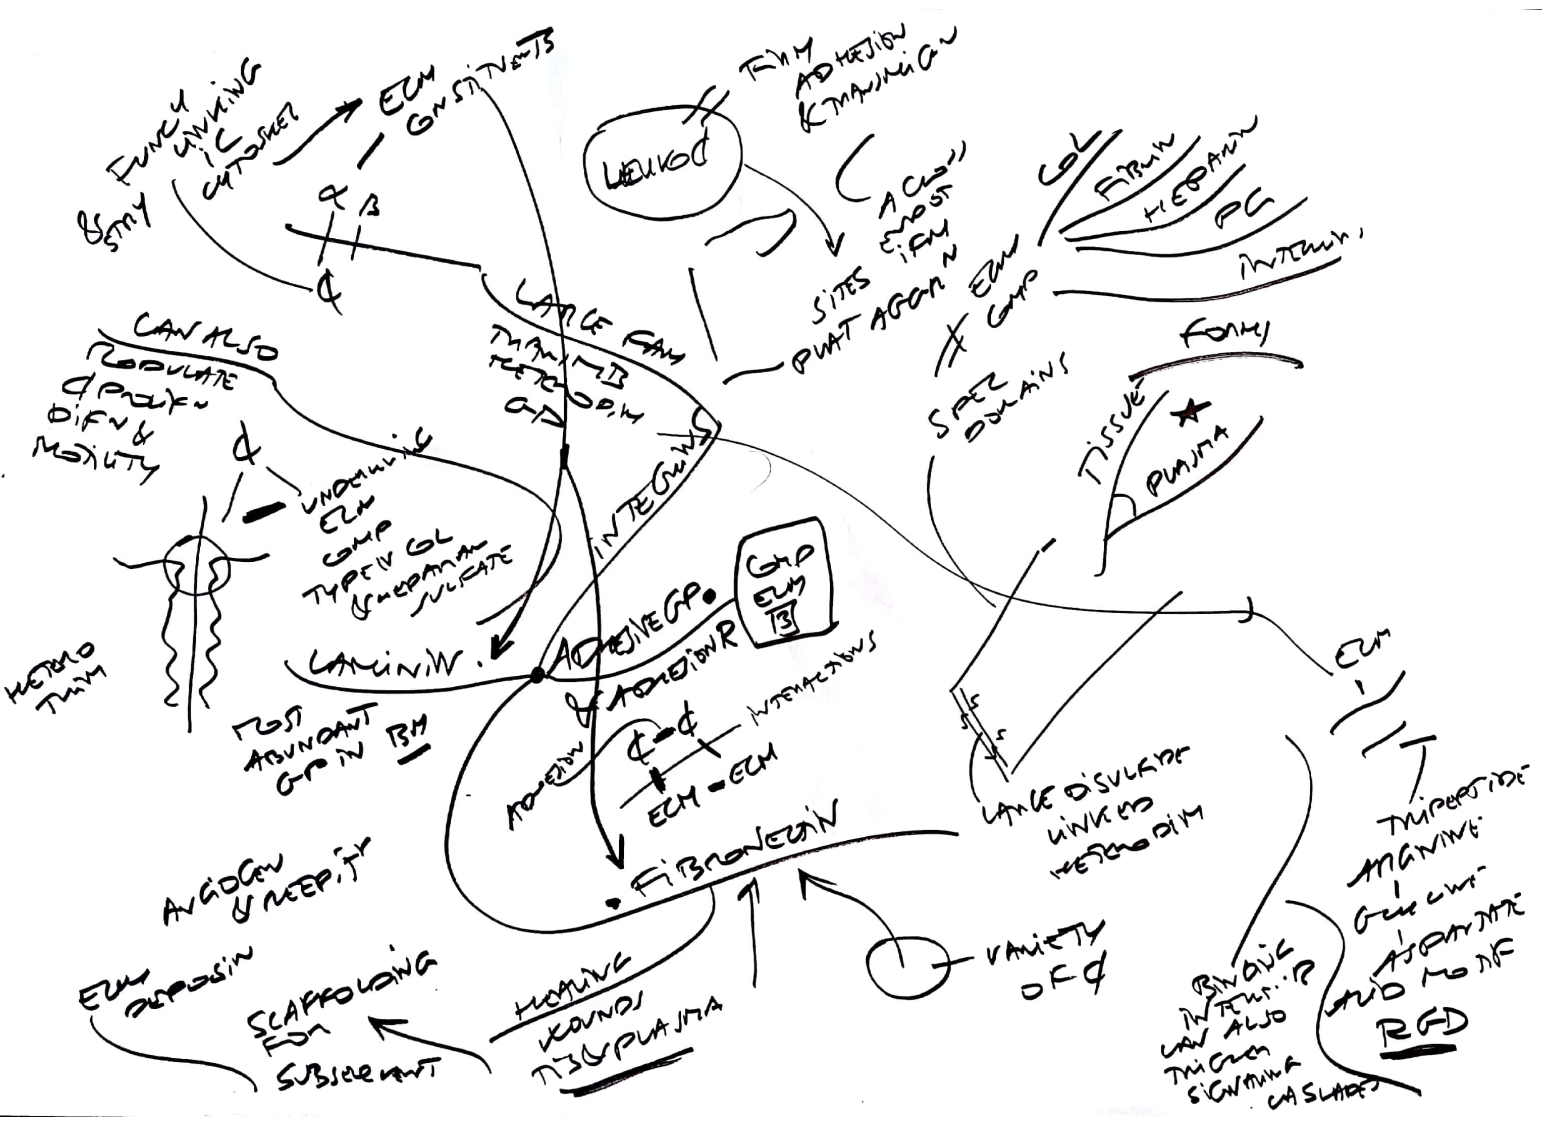 FUNCY
LINKING
IC
CYTOSKEL
& STRY
ECM
CONSTITUENTS
α β
₵
LEUKO₵
FIRM
ADHESION
& TRANSMIGN
SITES
PLAT AGGRN
≠ ECM
COMP
COL
FIBRIN
HEPARIN
PG
INTEGRIN
SPEC
DOMAINS
FORMS
TISSUE
PLASMA
LARGE FAM
TRANSMB
HETERODIM
GP
INTEGRINS
CAN ALSO
MODULATE
₵ PROLIFN
DIFN &
MOTILITY
₵
UNDERLYING
ECM
COMP
TYPE IV COL
& HEPARAN
SULFATE
HETERO
TRIM
LAMININ
MOST
ABUNDANT
GP IN BM
ADHESIVE GP
& ADHESION R
COMP
ECM
B
ADHESION
₵ - ₵
INTERACTIONS
ECM - ECM
FIBRONECTIN
LARGE DISULFIDE
LINKED
HETERODIM
S
S
S
S
ECM
TRIPEPTIDE
ARGININE
GLYCINE
ASPARTATE
ACID MOTIF
RGD
BINDING
INTEGRIN R
CAN ALSO
TRIGGER
SIGNALING
CASCADES
VARIETY
OF ₵
HEALING
WOUNDS
TIS & PLASMA
SCAFFOLDING
FOR
SUBSEQUENT
ECM
DEPOSIN
ANGIOGEN
& REEPITY